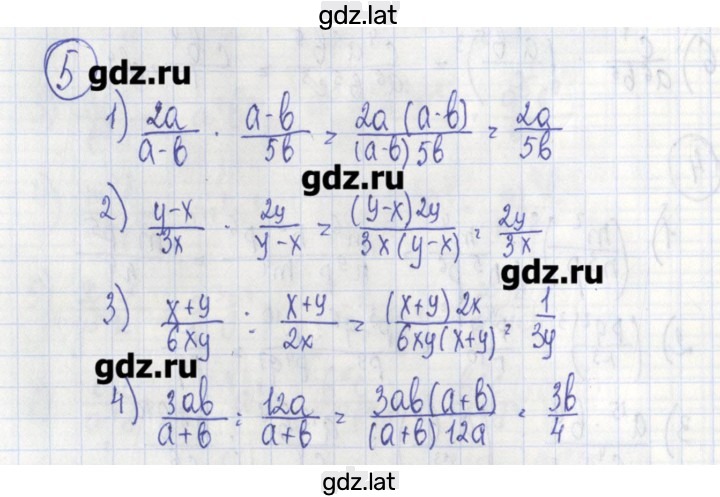 gdz.lat
5 gdz.ru
1) 2a/(a-b) · (a-b)/5b = 2a(a-b)/((a-b)5b) = 2a/5b
gdz.ru
2) (y-x)/3x · 2y/(y-x) = (y-x)2y/(3x(y-x)) = 2y/3x
gdz.ru
3) (x+y)/6xy : (x+y)/2x = (x+y)2x/(6xy(x+y)) = 1/3y
gdz.ru
4) 3ab/(a+b) : 12a/(a+b) = 3ab(a+b)/((a+b)12a) = 3b/4
gdz.lat